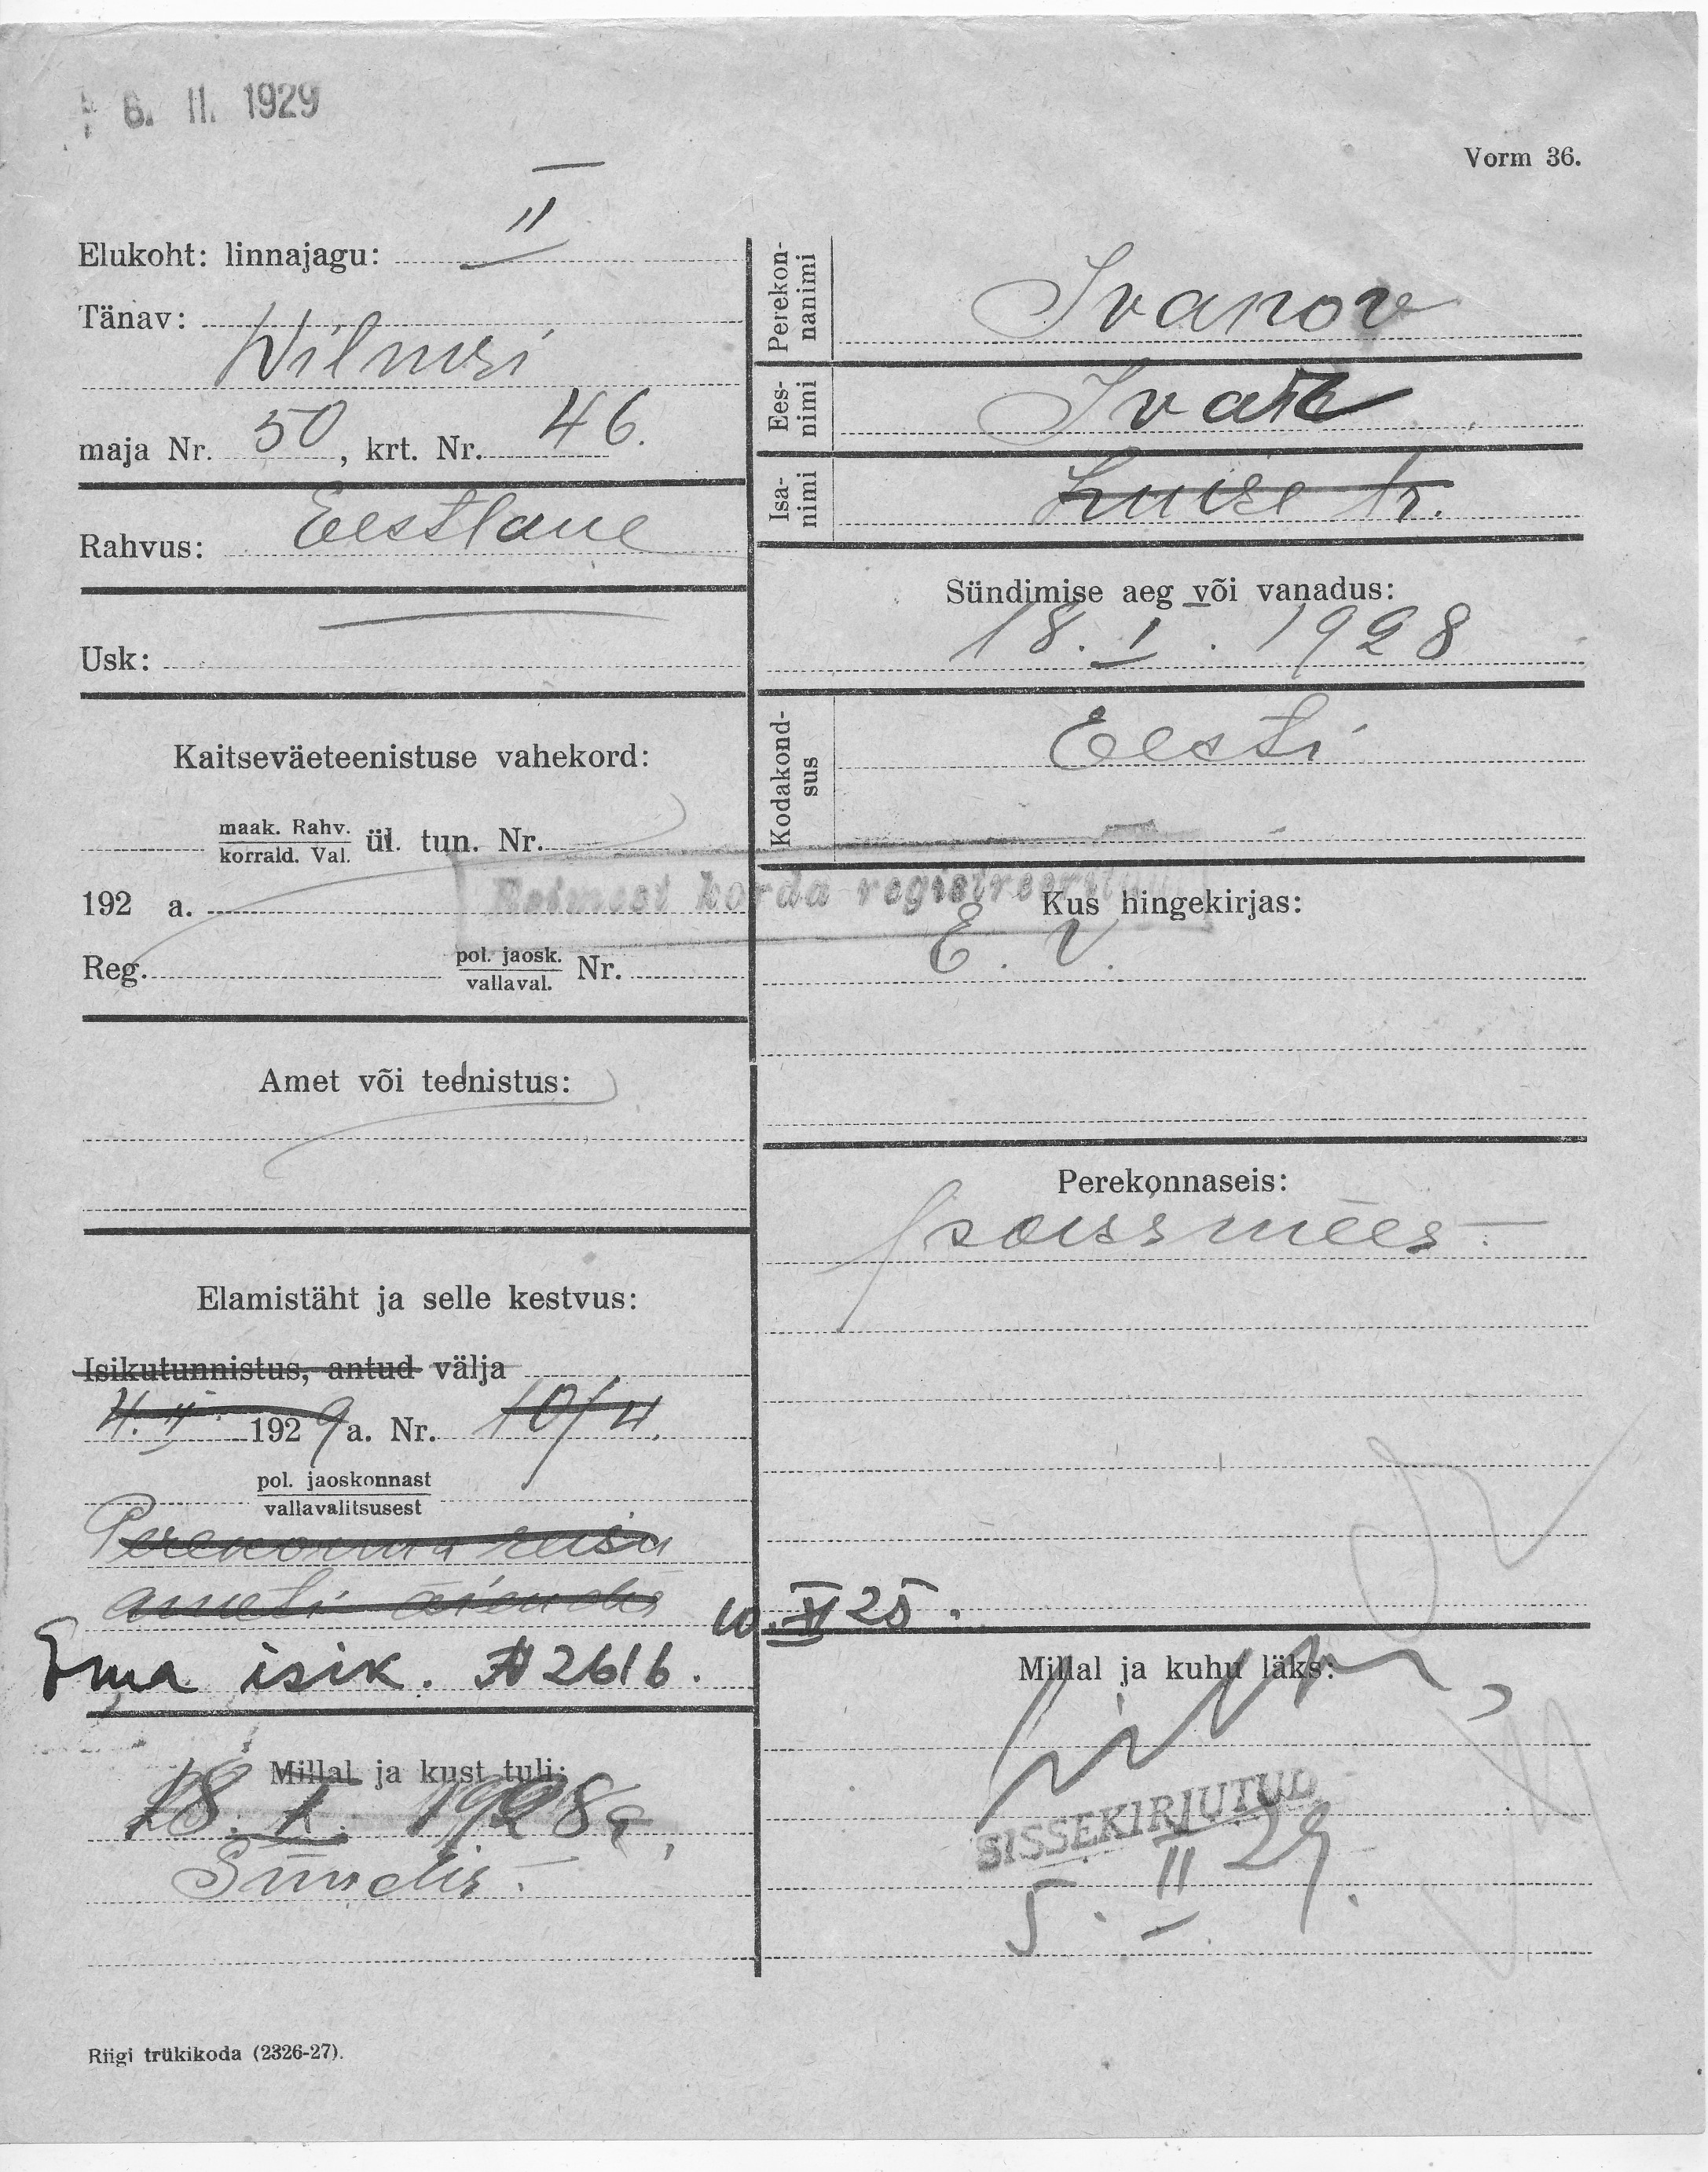 6. II. 1929
Vorm 36.
Elukoht: linnajagu: II
Tänav:
Wilmsi
maja Nr. 50, krt. Nr. 46.
Rahvus: Eestlane
Usk:
Kaitseväeteenistuse vahekord:
maak. Rahv.
korrald. Val. ül. tun. Nr.
192 a.
Reg. pol. jaosk. Nr.
vallaval.
Amet või teenistus:
Elamistäht ja selle kestvus:
Isikutunnistus, antud välja
4. II 1929 a. Nr. 10/4.
pol. jaoskonnast
vallavalitsusest
Perekonna seisu
ameti
Ema isik. N 2616. 10. II 25.
Millal ja kust tuli:
18. I. 1928 a,
Sündis.
Riigi trükikoda (2326-27).
Perekon-
nanimi
Ivanov
Ees-
nimi
Ivan
Isa-
nimi
Luise tr.
Sündimise aeg või vanadus:
18. I. 1928
Kodakond-
sus
Eesti
Esimest korda registreeritud
Kus hingekirjas:
E. V.
Perekonnaseis:
poissmees
Millal ja kuhu läks:
SISSEKIRJUTUD
5. II 29.